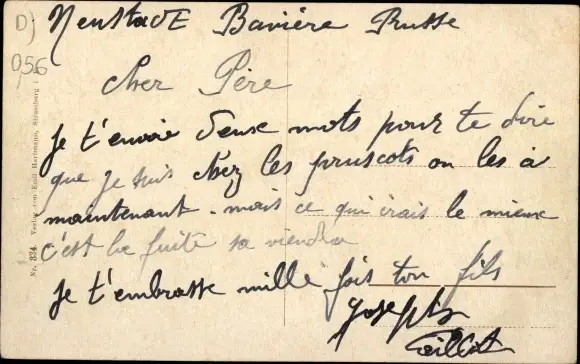 D)
056
Neustade Bavière Prusse
Cher Père
Je t'envoie deux mots pour te dire
que je suis chez les pruscots on les a
maintenant. mais ce qui irais le mieux
c'est la fuite sa viendra
Je t'embrasse mille fois ton fils
Joseph
Nr. 334. Verlag von Emil Hartmann, Strassburg i.